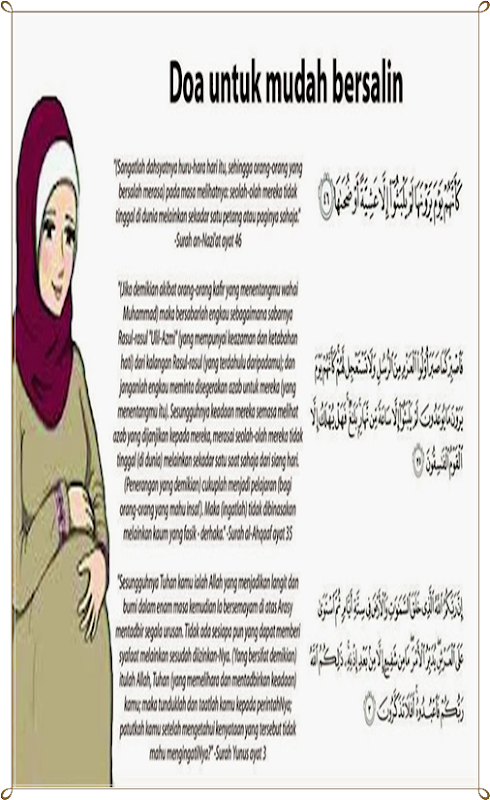 Doa untuk mudah bersalin
"(Sangatlah dahsyatnya huru-hara hari itu, sehingga orang-orang yang
bersalah merasa) pada masa melihatnya: seolah-olah mereka tidak
tinggal di dunia melainkan sekadar satu petang atau paginya sahaja."
-Surah an-Nazi'at ayat 46
كَأَنَّهُمْ يَوْمَ يَرَوْنَهَا لَمْ يَلْبَثُوٓا۟ إِلَّا عَشِيَّةً أَوْ ضُحَىٰهَا ٤٦
"(Jika demikian akibat orang-orang kafir yang menentangmu wahai
Muhammad) maka bersabarlah engkau sebagaimana sabarnya
Rasul-rasul "Ulil-Azmi" (yang mempunyai keazaman dan ketabahan
hati) dari kalangan Rasul-rasul (yang terdahulu daripadamu); dan
janganlah engkau meminta disegerakan azab untuk mereka (yang
menentangmu itu). Sesungguhnya keadaan mereka semasa melihat
azab yang dijanjikan kepada mereka, merasai seolah-olah mereka tidak
tinggal (di dunia) melainkan sekadar satu saat sahaja dari siang hari.
(Penerangan yang demikian) cukuplah menjadi pelajaran (bagi
orang-orang yang mahu insaf). Maka (ingatlah) tidak dibinasakan
melainkan kaum yang fasik - derhaka." -Surah al-Ahqaaf ayat 35
فَٱصْبِرْ كَمَا صَبَرَ أُو۟لُوا۟ ٱلْعَزْمِ مِنَ ٱلرُّسُلِ وَلَا تَسْتَعْجِل لَّهُمْ كَأَنَّهُمْ يَوْمَ
يَرَوْنَ مَا يُوعَدُونَ لَمْ يَلْبَثُوٓا۟ إِلَّا سَاعَةً مِّن نَّهَارٍۭ بَلَـٰغٌ فَهَلْ يُهْلَكُ إِلَّا
ٱلْقَوْمُ ٱلْفَـٰسِقُونَ ٣٥
"Sesungguhnya Tuhan kamu ialah Allah yang menjadikan langit dan
bumi dalam enam masa kemudian Ia bersemayam di atas Arasy
mentadbir segala urusan. Tidak ada sesiapa pun yang dapat memberi
syafaat melainkan sesudah diizinkan-Nya. (Yang bersifat demikian)
itulah Allah, Tuhan (yang memelihara dan mentadbirkan keadaan)
kamu; maka tunduklah dan taatlah kamu kepada perintahNya;
patutkah kamu setelah mengetahui kenyataan yang tersebut tidak
mahu mengingatiNya?" -Surah Yunus ayat 3
إِنَّ رَبَّكُمُ ٱللَّهُ ٱلَّذِى خَلَقَ ٱلسَّمَـٰوَٰتِ وَٱلْأَرْضَ فِى سِتَّةِ أَيَّامٍ ثُمَّ ٱسْتَوَىٰ
عَلَى ٱلْعَرْشِ يُدَبِّرُ ٱلْأَمْرَ مَا مِن شَفِيعٍ إِلَّا مِنۢ بَعْدِ إِذْنِهِۦ ذَٰلِكُمُ ٱللَّهُ
رَبُّكُمْ فَٱعْبُدُوهُ أَفَلَا تَذَكَّرُونَ ٣